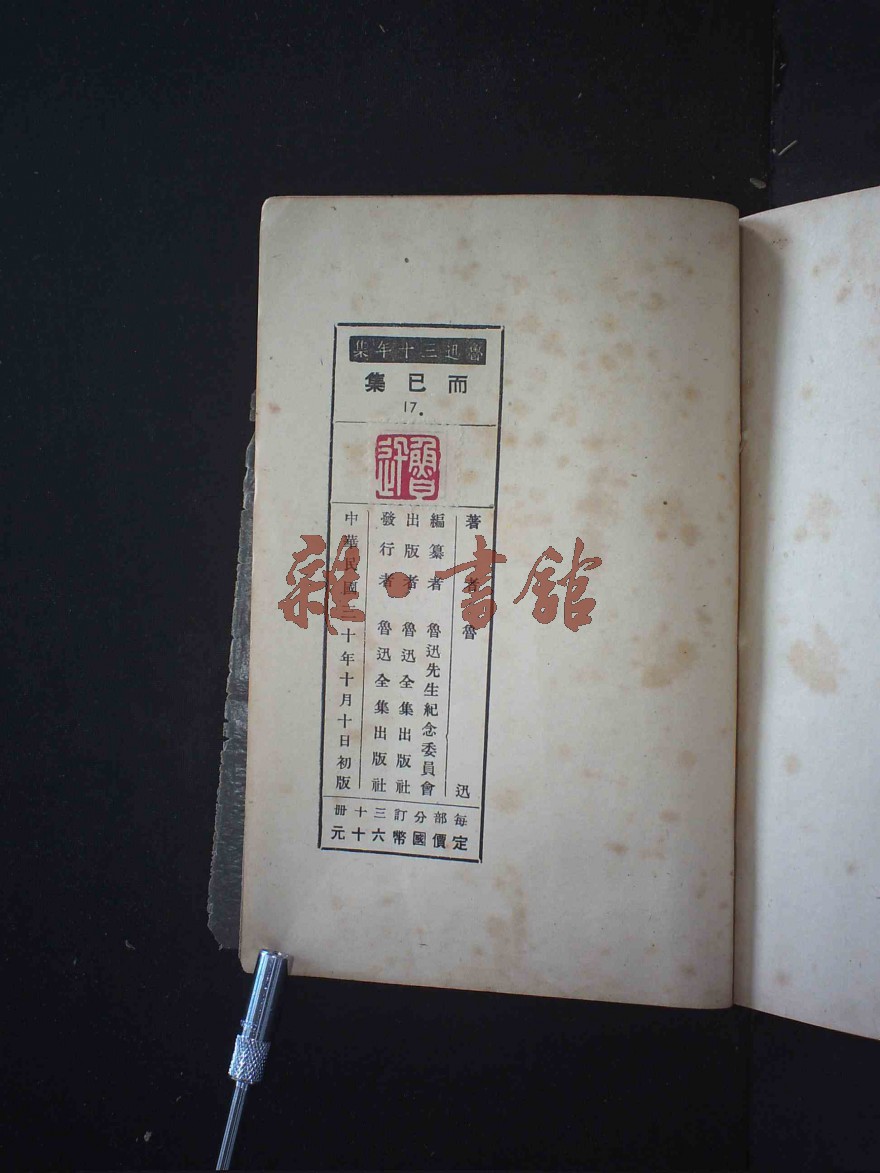 魯迅三十年集
而已集
17.
魯迅
著者 魯迅
編纂者 魯迅先生紀念委員會
出版者 魯迅全集出版社
發行者 魯迅全集出版社
中華民國三十年十月十日初版
每部分訂三十冊
定價國幣六十元
雜·書館